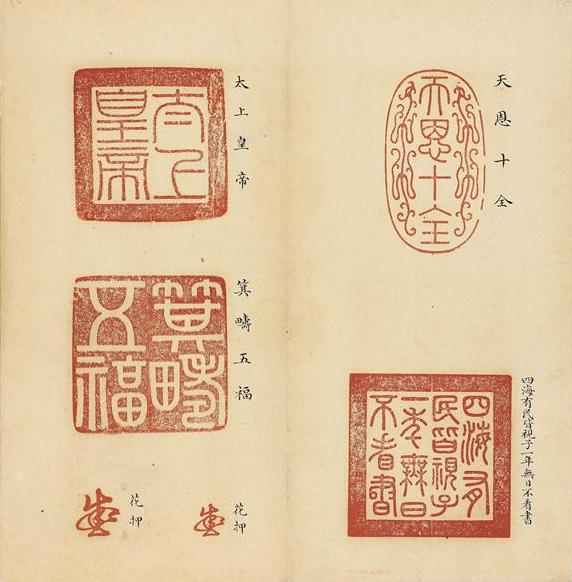 天恩十全
天恩十全
四海有民皆視子一年無日不看書
四海有
民皆視子
一年無日
不看書
太上皇帝
太上
皇帝
箕疇五福
箕疇
五福
花押
花押